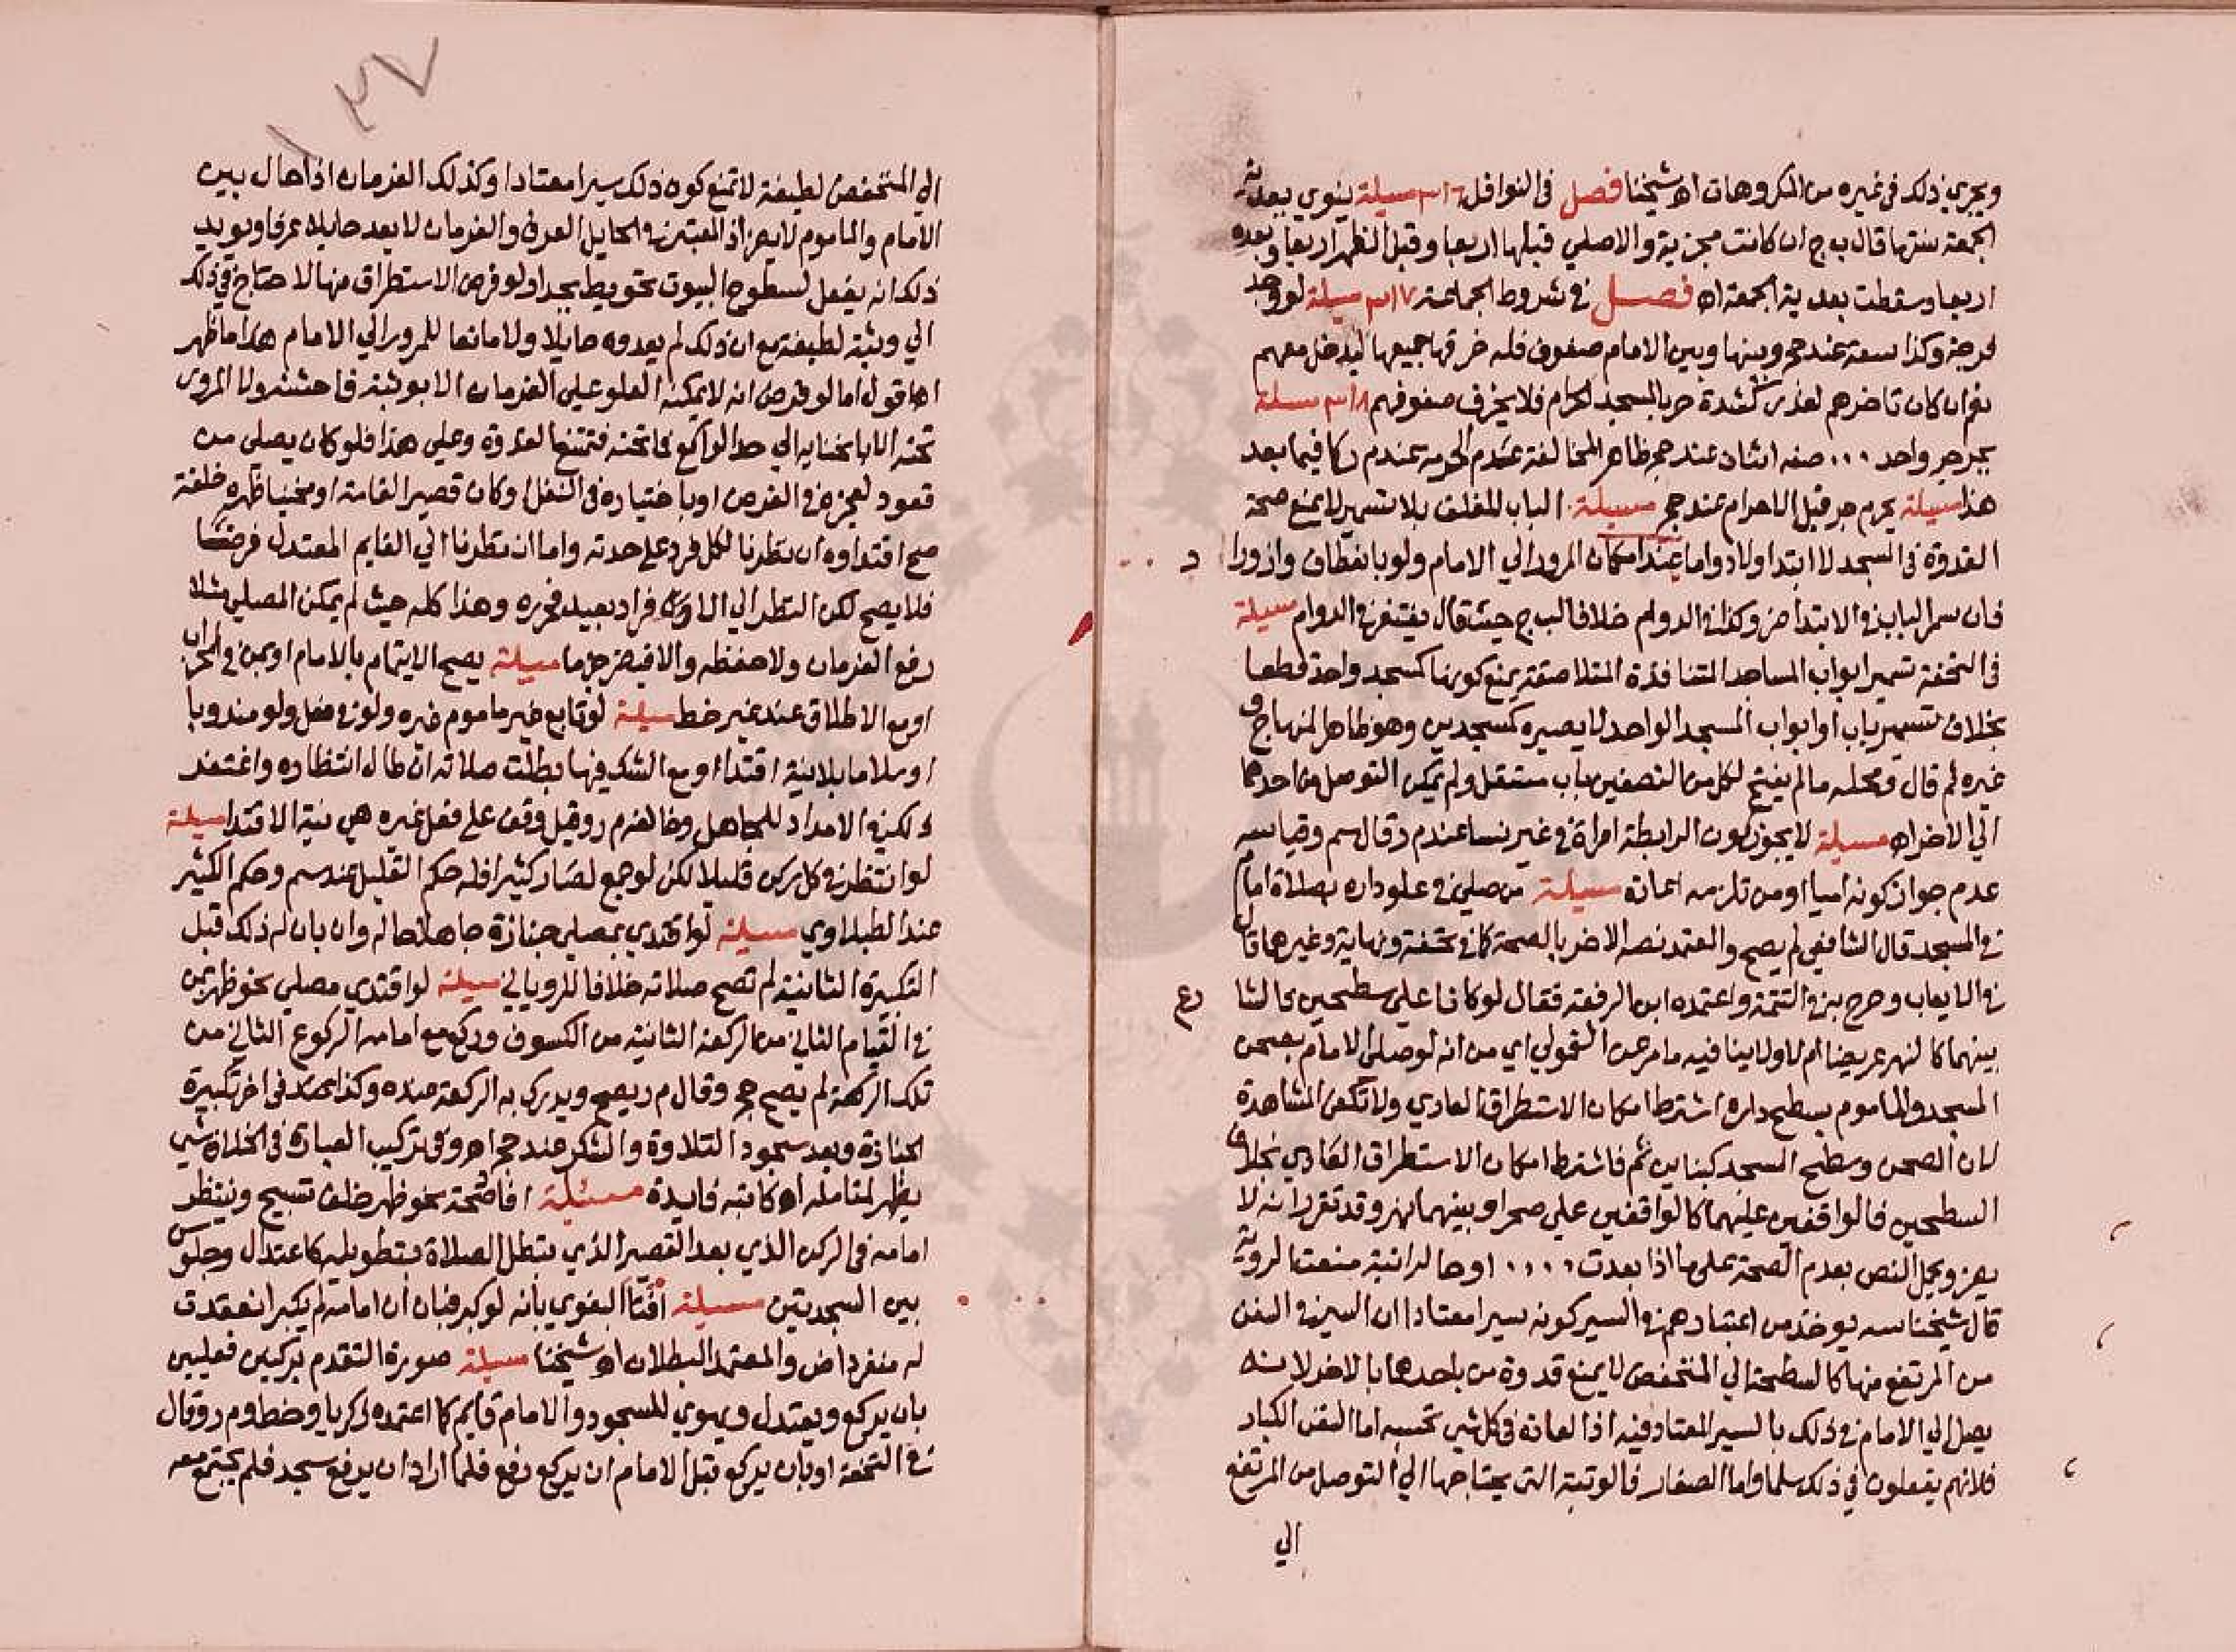 ويجري ذلك في غيره من المكروهات اه شيخنا فصل في النوافل مسيلة ينوي بعدية
الجمعة سنتها قال ب ج ان كانت مجزية والاصلي قبلها اربعا وقبل الظهر اربعا وبعده
اربعا وسقطت بعدية الجمعة اه فصل في شروط الجماعة مسيلة لو وجد
فرجة وكذا سعة عند حج وبينها وبين الامام صفوف فله خرقها جميعها ليدخل معهم
نعم ان كان تاخرهم لعذر كشدة حر بالمسجد الحرام فلا يخرق صفوفهم مسيلة
بجر حر واحد صفه عند حج ظاهر المخالفة عند م الحرمة عند م ر كما فيما بعد
هذا مسيلة يحرم جر قبل الاحرام عند حج مسيلة الباب المغلق بلا تسمير لا يمنع صحة
القدوة في المسجد لا ابتدا ولا دواما عند امكان المرور الي الامام ولو بانعطاف وازورار
فان سمر الباب في الابتدا ضر وكذا في الدوام خلافا لب ج حيث قال يغتفر في الدوام مسيلة
في التحفة تسمير ابواب المساجد المتنافذة المتلاصقة يمنع كونها كمسجد واحد قطعا
بخلاف تسمير باب او ابواب المسجد الواحد لا يصيره كمسجدين وهو ظاهر المنهاج و
غيره ثم قال ومحله ما لم يفتح لكل من النصفين باب مستقل ولم يمكن التوصل من احدهما
الي الاخر اه مسيلة لا يجوز كون الرابطة امراة في غير نسا عند م ر قال سم وقياسه
عدم جواز كونه اميا او من تلزمه اعادة مسيلة من صلي في علو داره بصلاة امام
في المسجد قال الشافعي لم يصح والمعتمد نصه الاخر بالصحة كما في تحفة ونهاية وغيرها قال
في الايعاب وصرح به في التتمة واعتمده ابن الرفعة فقال لو كانا علي سطحين حالتا
بينهما كالنهر عريضا ام لا ولا ينافيه ما مر عن القمولي اي من انه لو صلي الامام بصحن
المسجد والماموم بسطح داره اشترط امكان الاستطراق العادي ولا تكفي المشاهدة
لان الصحن وسطح المسجد كبنايين ثم فاشترط امكان الاستطراق العادي بخلاف
السطحين فالواقفين عليهما كالواقفين علي صحرا وبينهما نهر وقد تقرر انه لا
يضر ويحمل النص بعدم الصحة علي ما اذا بعدت او حالت ابنية منعت الروية
قال شيخنا سه يوخذ من اعتبارهم في السير كونه سيرا معتادا ان السير في السفن
من المرتفع منها كالسطحة الي المنخفض لا يمنع قدوة من باحدهما بالاخر لانه
يصل الي الامام في ذلك بالسير المعتاد فيه اذ العادة في كل شي بحسبه اما السفن الكبار
فلانهم يفعلون في ذلك سلما واما الصغار فالوثبة التي يحتاجها الي التوصل من المرتفع
الي
١٣٧
الي المنخفض لطيفة لا تمنع كون ذلك سيرا معتادا وكذلك الفرمان اذا حال بين
الامام والماموم لا يضر اذ المعتبر في الحايل العرف والفرمان لا يعد حايلا عرفا ويويد
ذلك انه يفعل لسطوح البيوت تحويط بجدار ولو فرض الاستطراق منها لاحتاج في ذلك
الي وثبة لطيفة مع ان ذلك لم يعدوه حايلا ولا مانعا للمرور الي الامام هذا ما ظهر
اه اقول اما لو فرض انه لا يمكنه العلو علي الفرمان الا بوثبة فاحشة ولا المرور
تحته الا بانحنايه الي حد الراكع في تحته فتمتنع القدوة وعلي هذا فلو كان يصلي من
قعود لعجزه في الفرض او باختياره في النفل او كان قصير القامة او منحنيا ظهره خلقة
صح اقتداوه ان نظرنا لكل فرد علي حدته واما ان نظرنا الي القايم المعتدل فرضا
فلا يصح لكن النظر الي الافراد بعيد فحرره وهذا كله حيث لم يمكن المصلي مثلا
رفع الفرمان ولا حفظه والا فيضر جزما مسيلة يصح الايتمام بالامام او بمن في المحراب
او مع الاطلاق عند غير خط مسيلة لو تابع غير ماموم غيره ولو في فعل ولو مندوبا
او سلاما بلا نية اقتدا او مع الشك فيها بطلت صلاته ان طال انتظاره واغتفر
ذلك في الامداد للجاهل وخالفه م ر وقيل وقف علي فعل غيره هي نية الاقتدا مسيلة
لو انتظر في كل ركن قليلا لكن لو جمع لصار كثيرا فله حكم القليل عند سم وحكم الكثير
عند الطبلاوي مسيلة لو اقتدي بمصلي جنازة جاهلا حاله وان بان له ذلك قبل
التكبيرة الثانية لم تصح صلاته خلافا للروياني مسيلة لو اقتدي مصلي نحو ظهر بمن
في القيام الثاني من الركعة الثانية من الكسوف وركع مع امامه الركوع الثاني من
تلك الركعة لم يصح حج وقال م ر يصح ويدرك به الركعة عنده وكذا عنده في اخر تكبيرة
الجنازة وبعد سجود التلاوة والشكر عند حج اه وفي تركيب العبارة في الخلاف شي
يظهر لمتامله اه كاتبه فايدة مسيلة افاد صحة نحو ظهر خلف تسبيح وينتظر
امامه في الركن الذي بعد القصير الذي تبطل الصلاة بتطويله كاعتدال وجلوس
بين السجدتين مسيلة افتا البغوي بانه لو كبر فبان ان امامه لم يكبر انعقدت
له منفردا ض والمعتمد البطلان اه شيخنا مسيلة صورة التقدم بركنين فعليين
بان يركع ويعتدل ويهوي للسجود والامام قايم كما اعتمده زكريا وخط وم ر وقال
في التحفة او بان يركع قبل الامام ان يركع رفع فلما اراد ان يرفع سجد فلم يجتمع معه